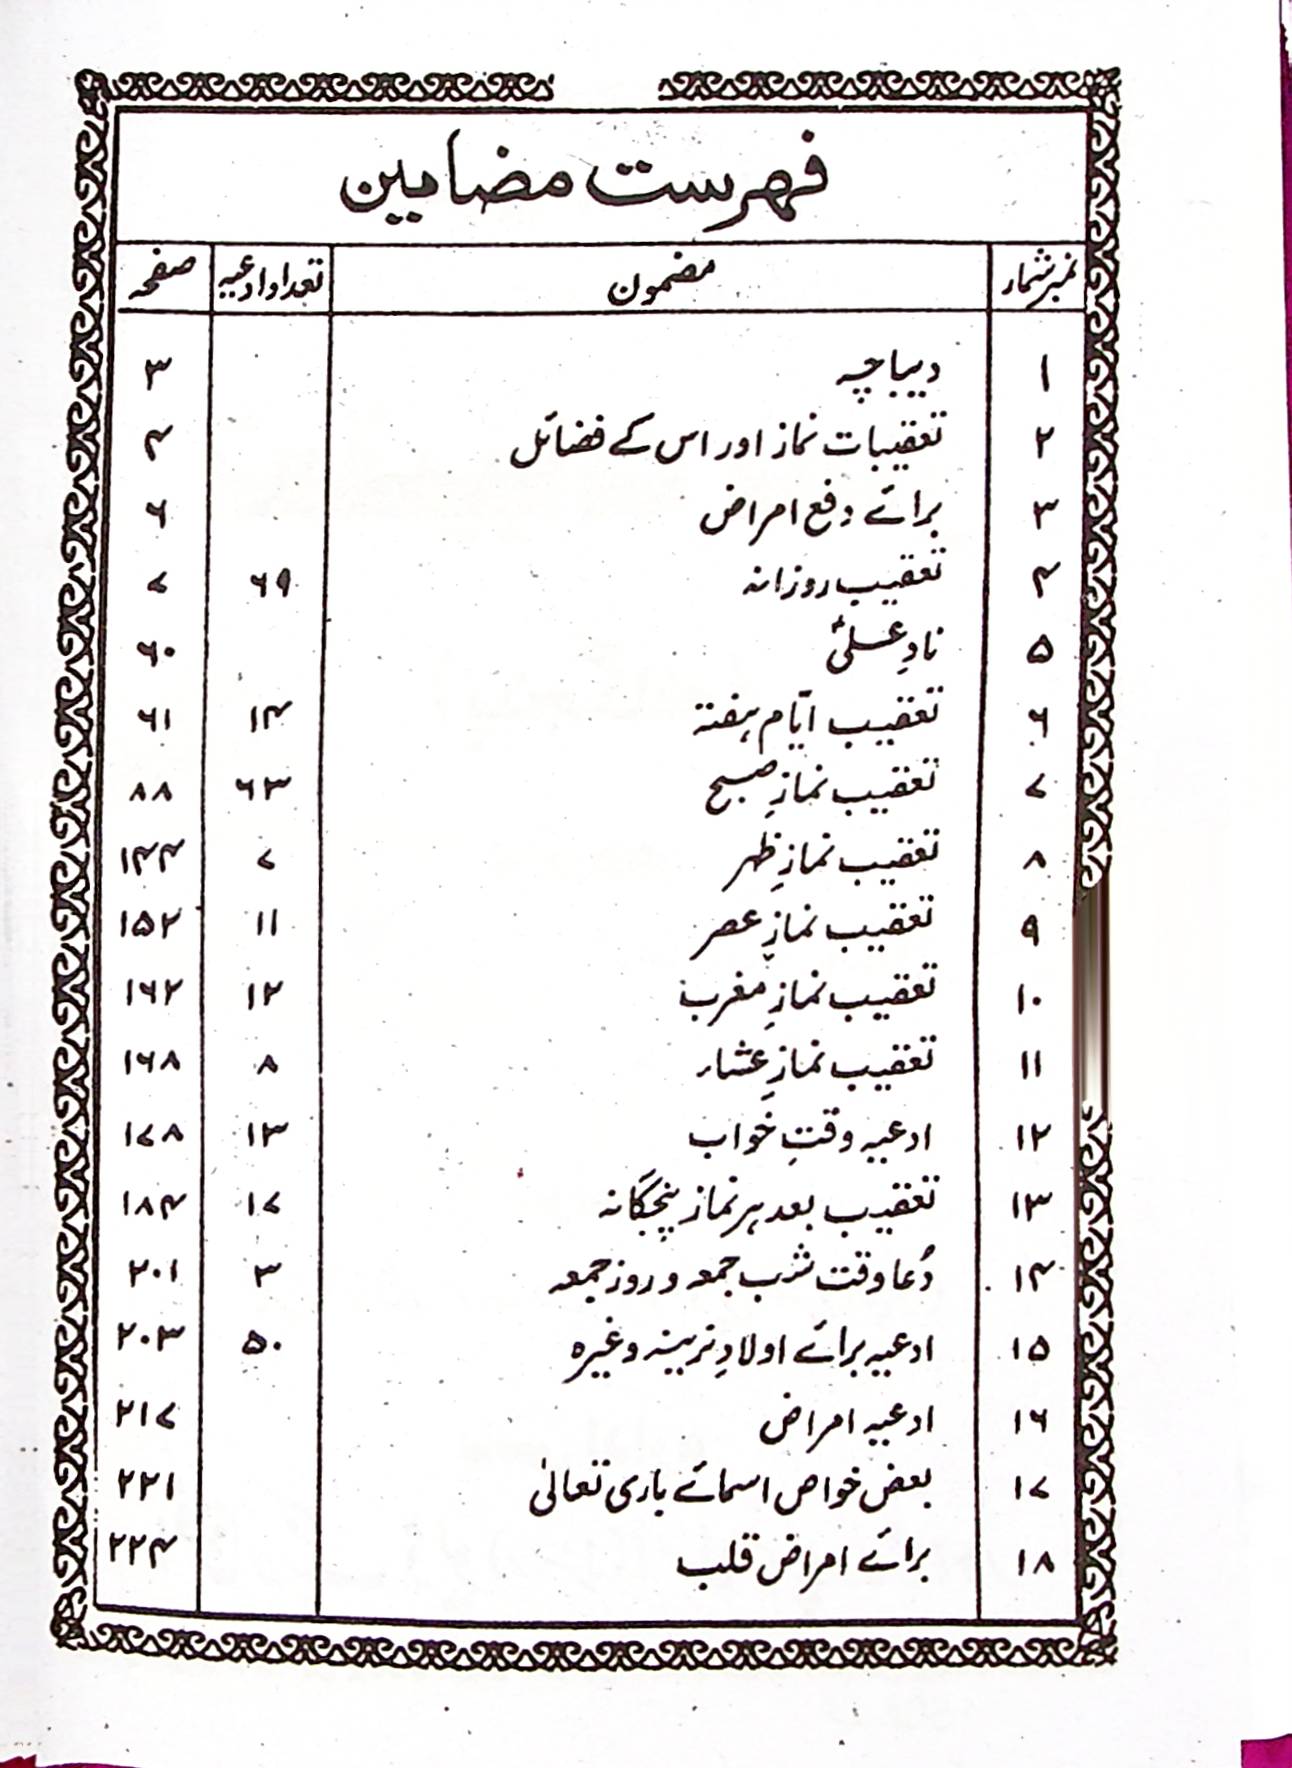 فہرست مضامین
نمبر شمار مضمون تعداد ادعیہ صفحہ
۱ دیباچہ ۳
۲ تعقیبات نماز اور اس کے فضائل ۴
۳ برائے دفع امراض ۶
۴ تعقیب روزانہ ۶۹ ۷
۵ نادِ علیؑ ۶۰
۶ تعقیب ایّام ہفتہ ۱۴ ۶۱
۷ تعقیب نمازِ صبح ۶۳ ۸۸
۸ تعقیب نمازِ ظہر ۷ ۱۴۴
۹ تعقیب نمازِ عصر ۱۱ ۱۵۲
۱۰ تعقیب نمازِ مغرب ۱۲ ۱۶۲
۱۱ تعقیب نمازِ عشاء ۸ ۱۶۸
۱۲ ادعیہ وقتِ خواب ۱۳ ۱۷۸
۱۳ تعقیب بعد ہر نماز پنجگانہ ۱۷ ۱۸۴
۱۴ دُعا وقت شب جمعہ و روز جمعہ ۳ ۲۰۱
۱۵ ادعیہ برائے اولادِ نرینہ وغیرہ ۵۰ ۲۰۳
۱۶ ادعیہ امراض ۲۱۷
۱۷ بعض خواص اسمائے باری تعالیٰ ۲۲۱
۱۸ برائے امراض قلب ۲۲۴